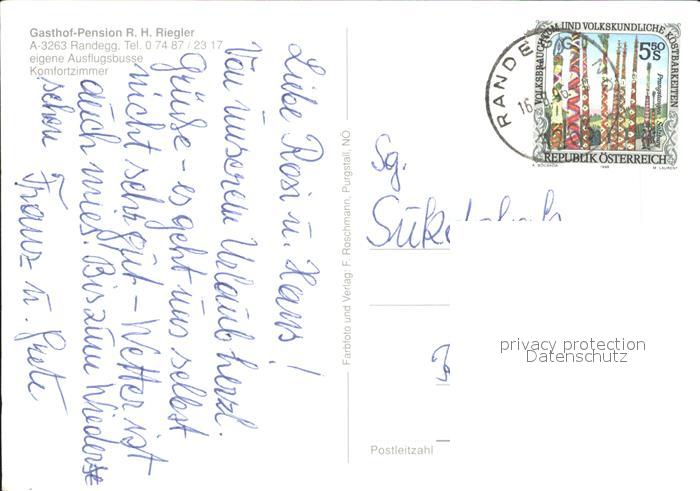 Gasthof-Pension R. H. Riegler
A-3263 Randegg. Tel. 0 74 87 / 23 17
eigene Ausflugsbusse
Komfortzimmer
Liebe Rosi u. Hans!
Von unserem Urlaub herzl.
Grüße - es geht uns selbst
nicht sehr gut - Wetter ist
auch mies. Bis zum Wieder-
sehen Franz u. Grete
Farbfoto und Verlag: F. Roschmann, Purgstall, NÖ
VOLKSBRAUCHTUM UND VOLKSKUNDLICHE KOSTBARKEITEN
5.50 S
REPUBLIK ÖSTERREICH
1996
RANDEGG
16
Sg.
privacy protection
Datenschutz
Postleitzahl